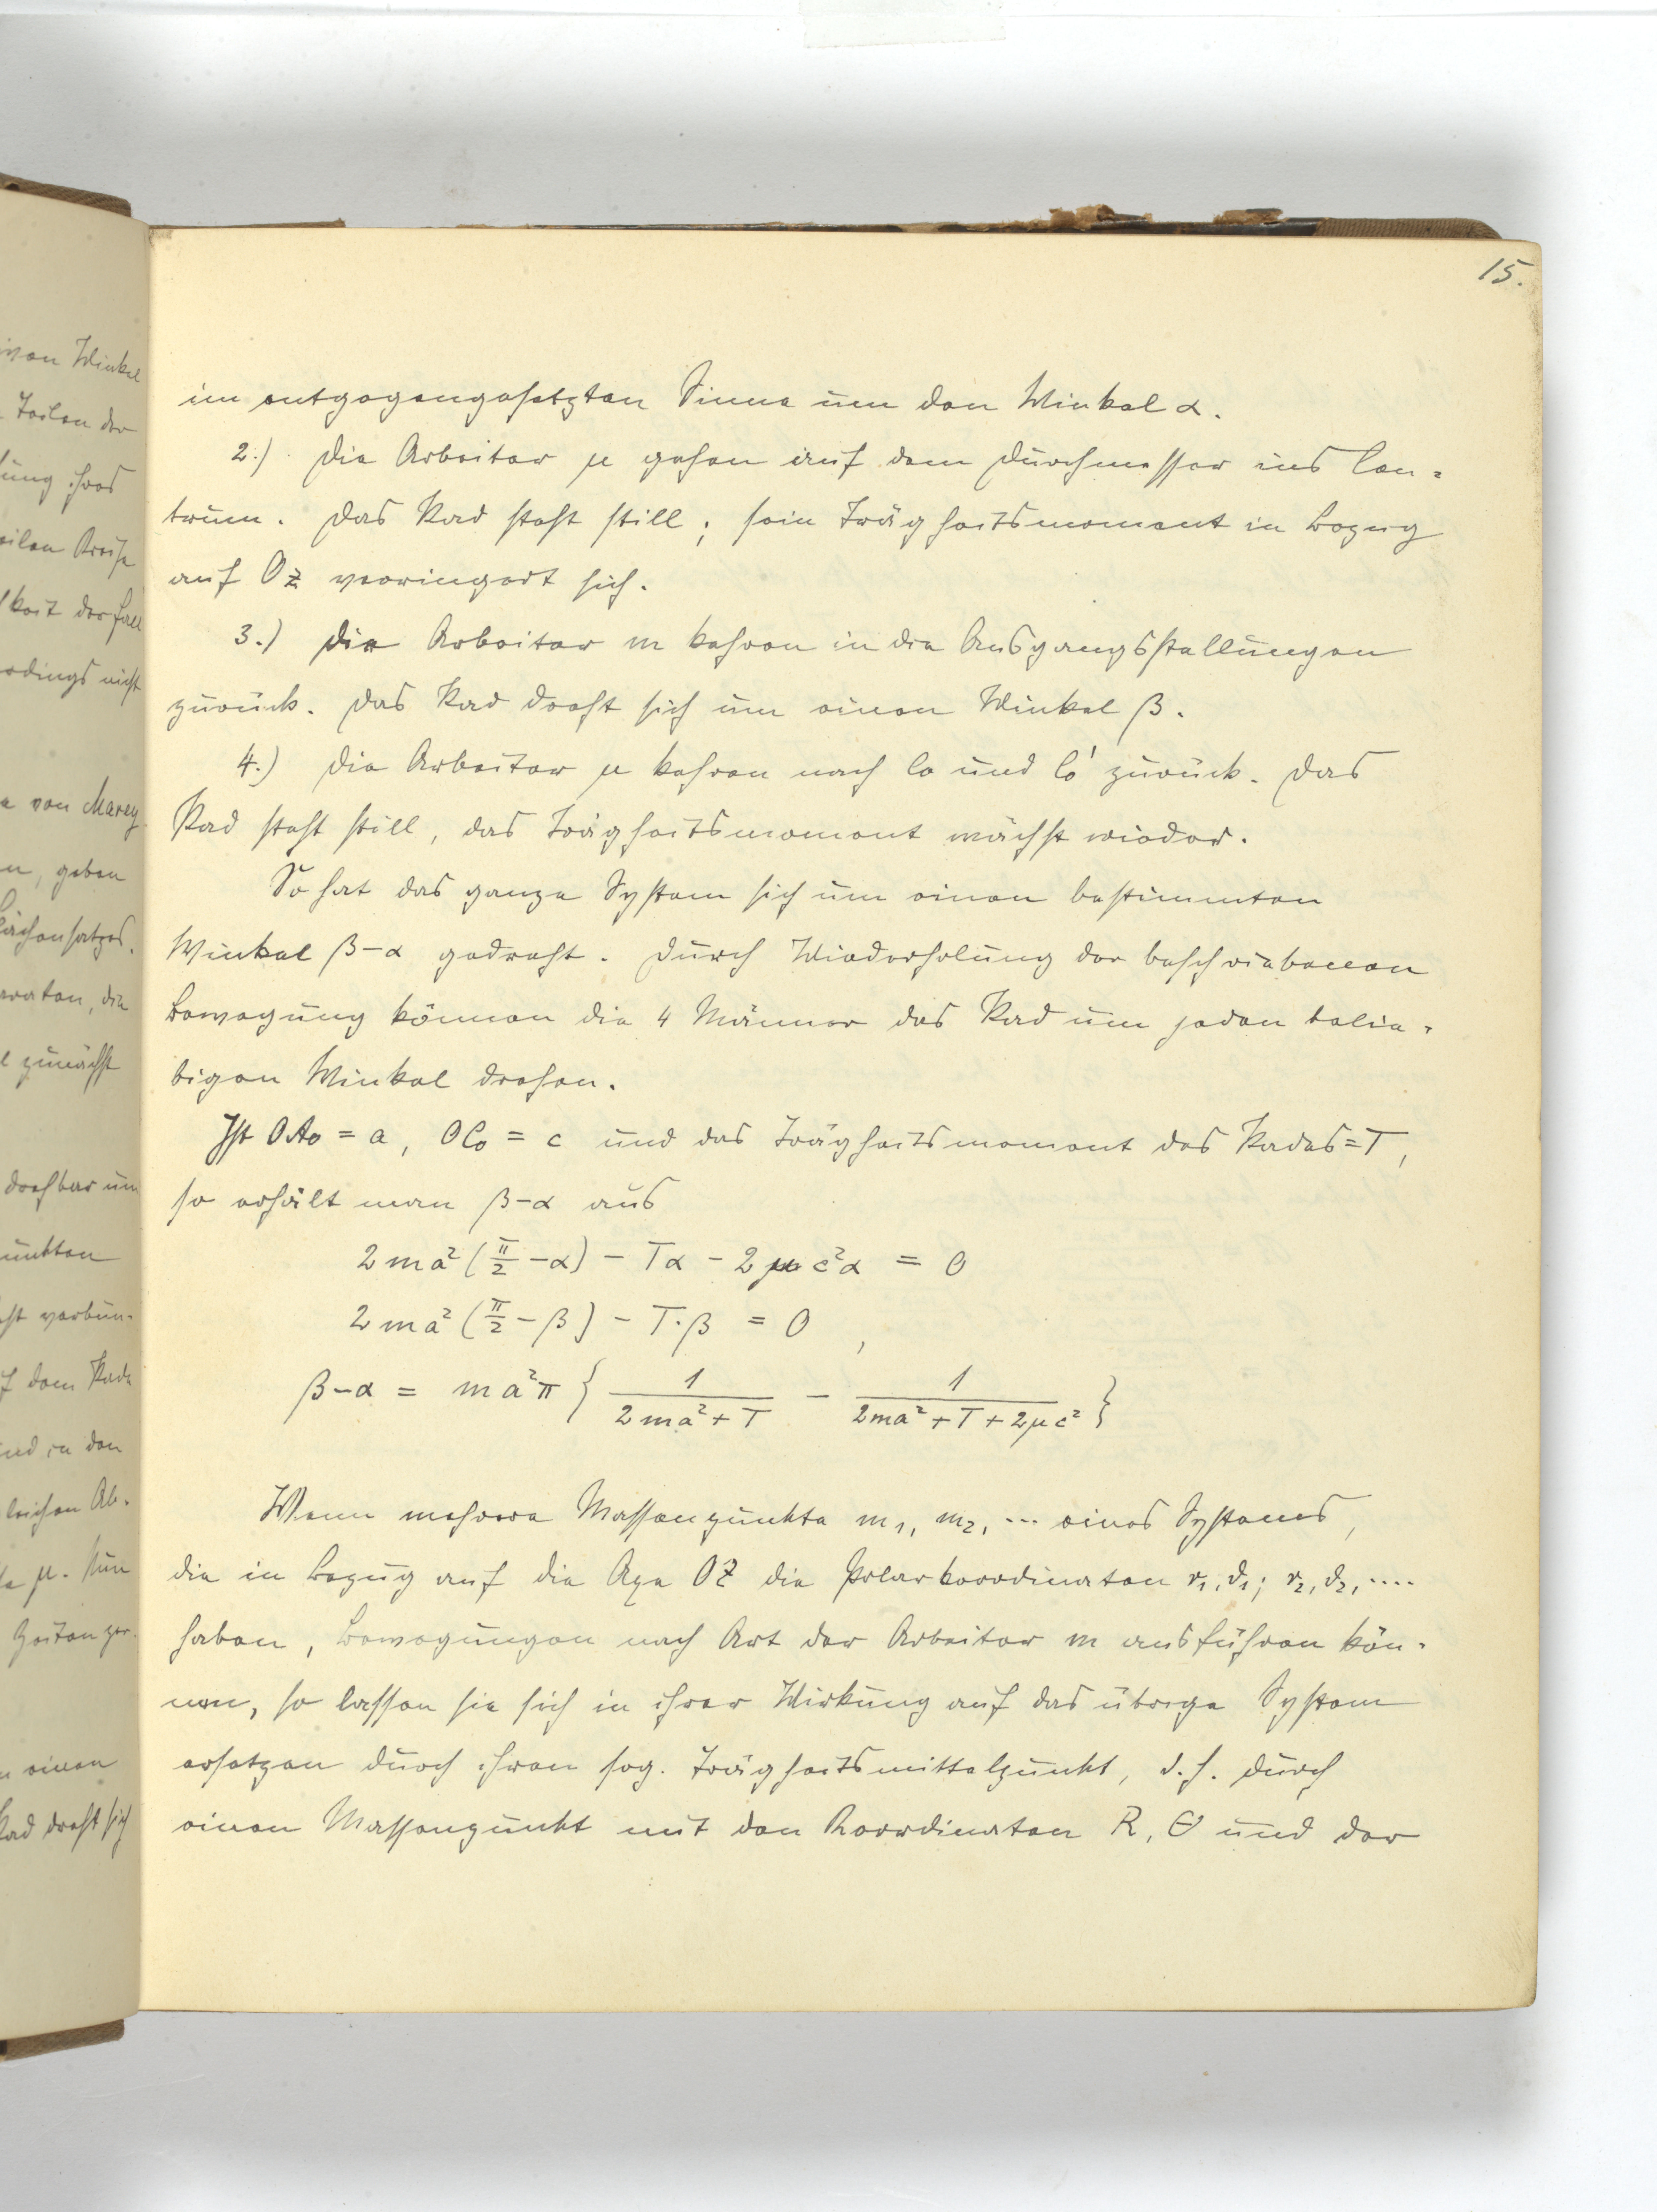 15.
im entgegengesetzten Sinne um den Winkel α.
2.) Die Arbeiter μ gehen auf dem Durchmesser ins Cen-
trum. Das Rad steht still; sein Trägheitsmoment in Bezug
auf OZ verringert sich.
3.) Die Arbeiter m kehren in die Ausgangsstellungen
zurück. Das Rad dreht sich um einen Winkel β.
4.) Die Arbeiter μ kehren nach C₀ und C₀' zurück. Das
Rad steht still, das Trägheitsmoment wächst wieder.
So hat das ganze System sich um einen bestimmten
Winkel β-α gedreht. Durch Wiederholung der beschriebenen
Bewegung können die 4 Männer das Rad um jeden belie-
bigen Winkel drehen.
Ist OA₀ = a, OC₀ = c und das Trägheitsmoment des Rades = T,
so erhält man β-α aus
2 m a² (π/2 - α) - Tα - 2 μ c² α = 0
2 m a² (π/2 - β) - T·β = 0,
β-α = m a² π { 1/(2ma² + T) - 1/(2ma² + T + 2μc²) }
Wenn mehrere Massenpunkte m₁, m₂, ... eines Systems,
die in Bezug auf die Axe OZ die Polarkoordinaten r₁, ϑ₁; r₂, ϑ₂, ....
haben, Bewegungen nach Art der Arbeiter m ausführen kön-
nen, so lassen sie sich in ihrer Wirkung auf das übrige System
ersetzen durch ihren sog. Trägheitsmittelpunkt, d.h. durch
einen Massenpunkt mit den Koordinaten R, Θ und der